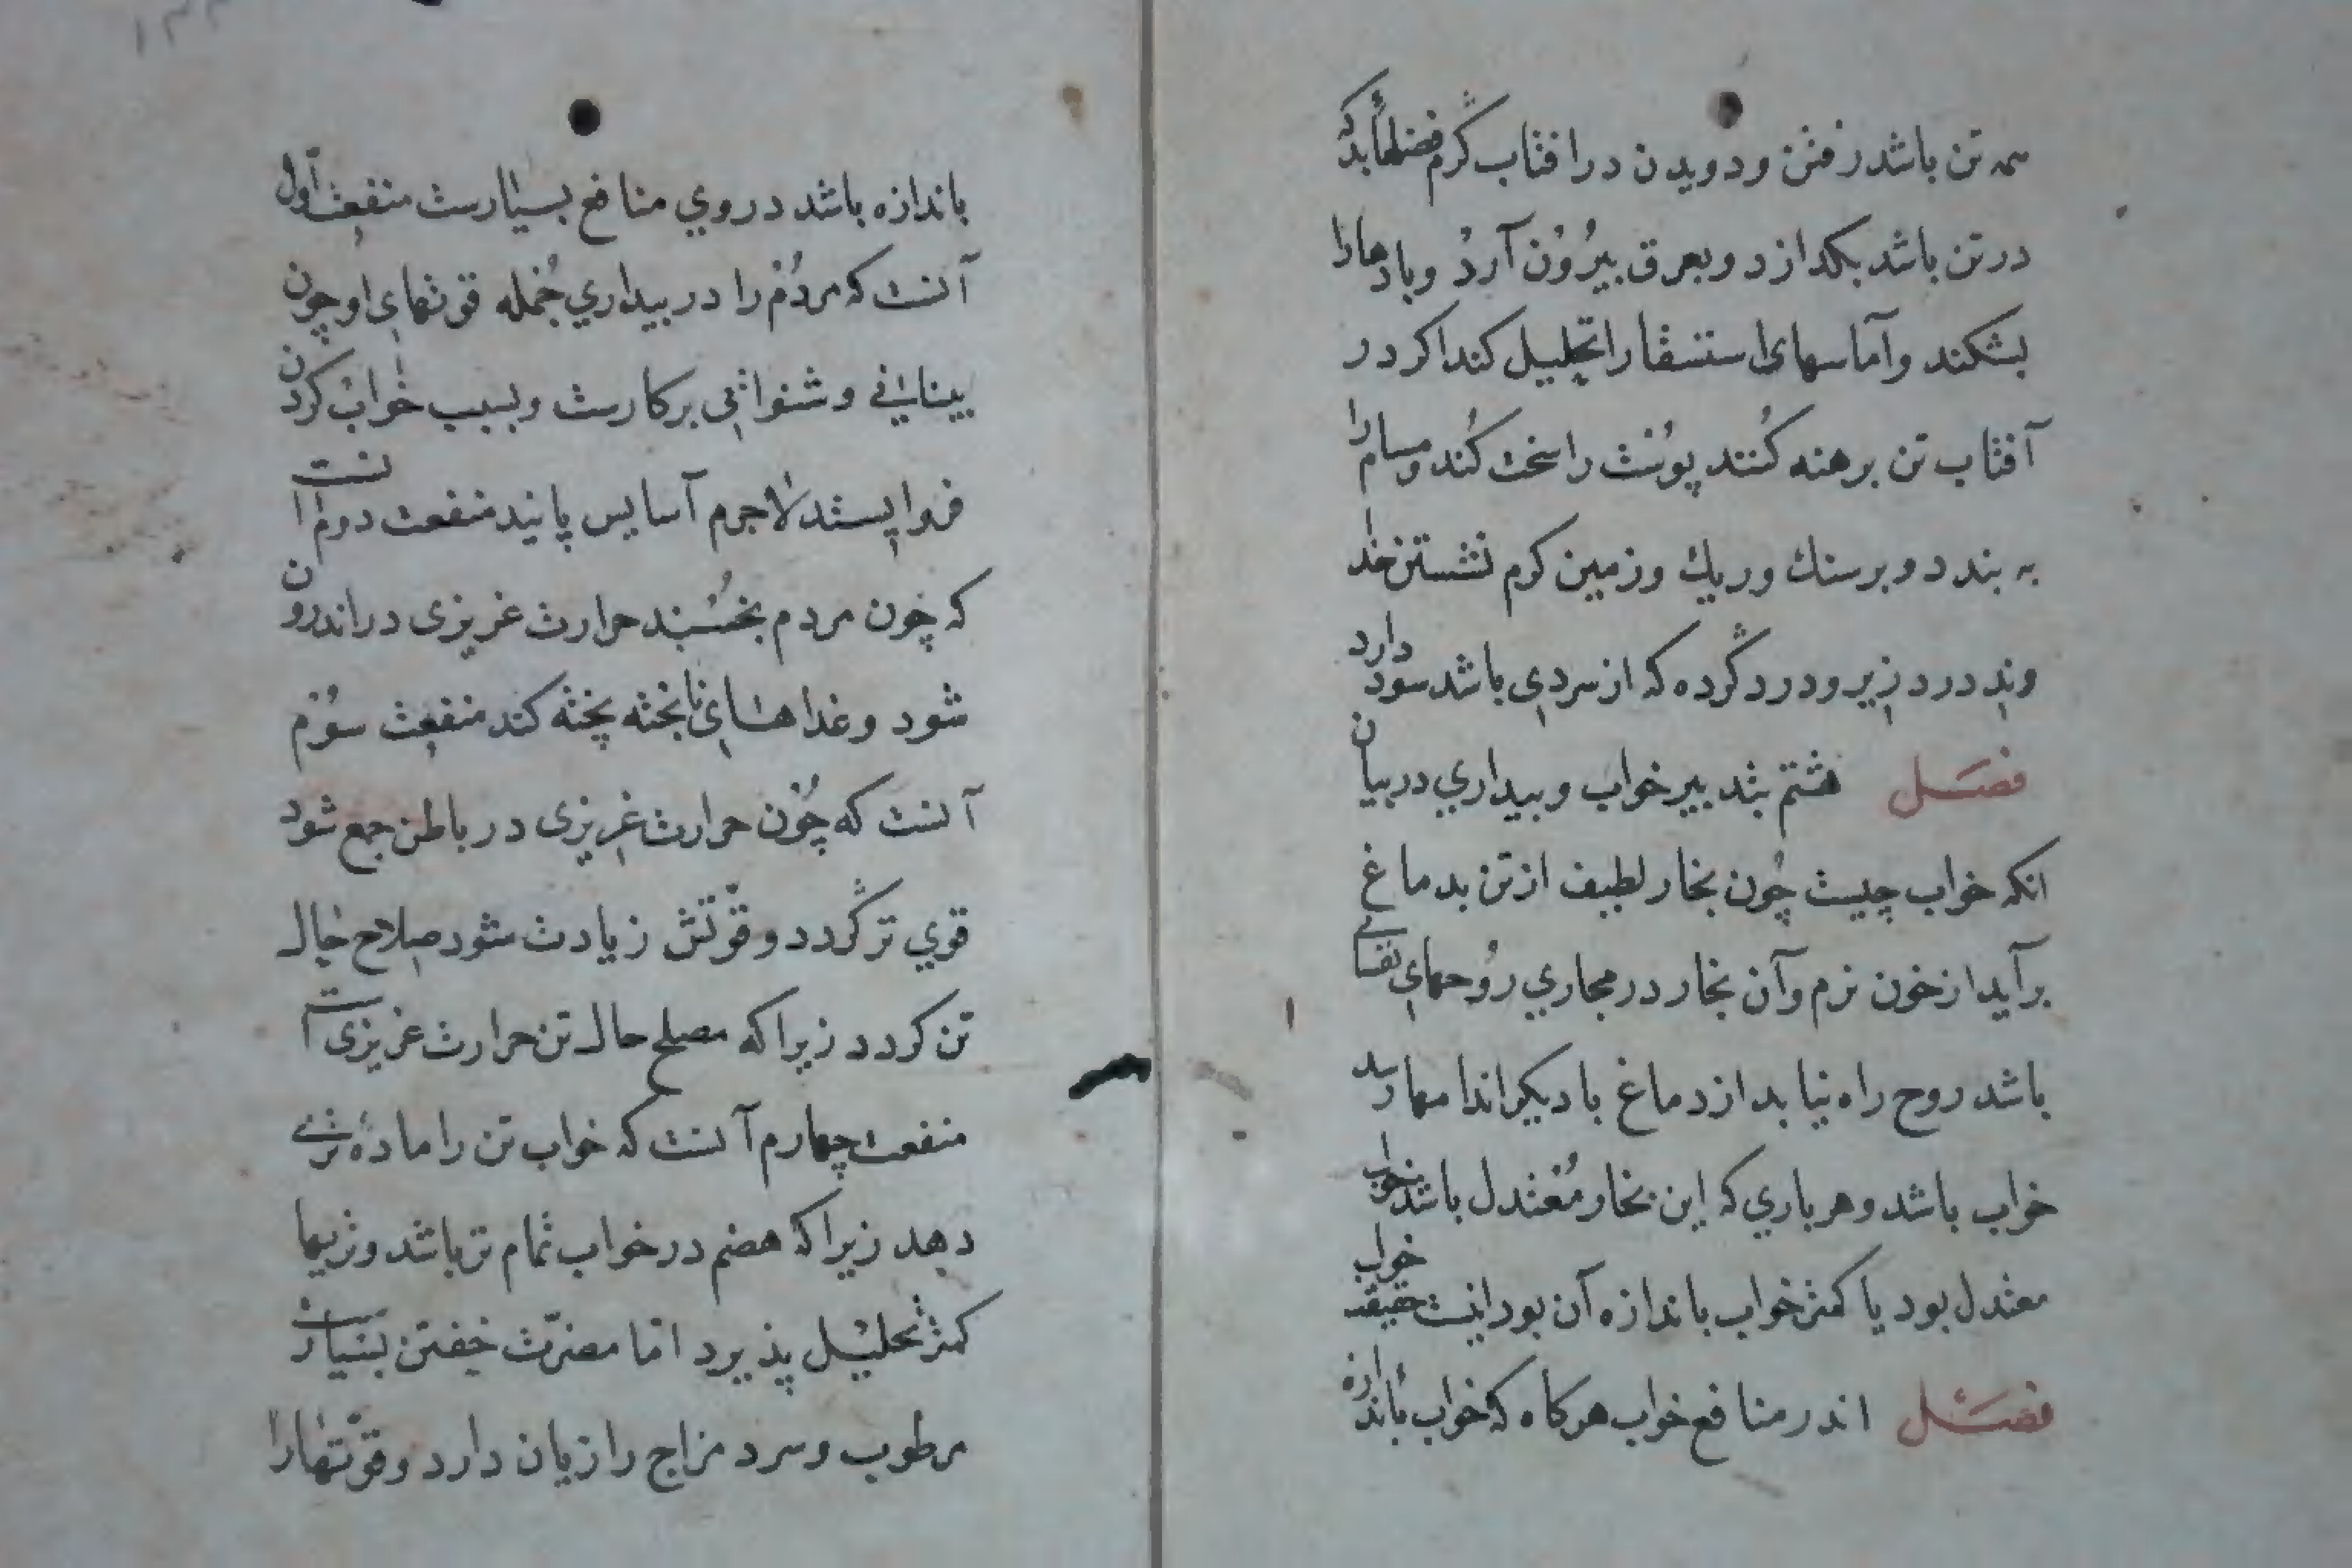 همه تن باشد رفتن و دویدن در افتاب گرم فضلهاء بد که
در تن باشد بکدازد و بعرق بیرون آرد و بادهارا
بشکند و آماسهای استسقا را تحلیل کند اکر در
آفتاب تن برهنه کنند پوست را سخت کند و مسام را
به بندد و بر سنك و ریك و زمین کرم نشستن
درد زیر و درد گرده که از سردی باشد سود دارد
فصل هشتم تدبیر خواب و بیداري در بیان
انکه خواب چیست چون بخار لطیف از تن بدماغ
برآید از خون نرم و آن بخار در مجاري روحهای نفسانی
باشد روح راه نیابد از دماغ با دیکر اندامها رسد
خواب باشد و هر باری که این بخار معتدل باشد خواب
معتدل بود یا کمتر خواب باندازه آن بود اینست حقیقت خواب
فصل اندر منافع خواب هرکاه که خواب باندازه
باندازه باشد در وي منافع بسیارست منفعت اول
آنست که مردم را در بیداري جمله قوتهای او چون
بینایی و شنوائی بر کارست و بسبب خواب کردن
فروا یستد لاجرم آسایس یابند منفعت دوم آنست
که چون مردم بخسبند حرارت غریزی در اندرون
شود و غذاهای ناپخته پخته کند منفعت سوم
آنست که چون حرارت غریزی در باطن جمع شود
قوي تر گردد و قوتش زیادت شود صلاح حال
تن کردد زیرا که مصلح حال تن حرارت غریزی است
منفعت چهارم آنست که خواب تن را مادهٔ تری
دهد زیرا که هضم در خواب تمام تر باشد و تریها
کمتر تحلیل پذیرد اما مضرت خفتن بسیارست
مرطوب و سرد مزاج را زیان دارد و قوتهارا